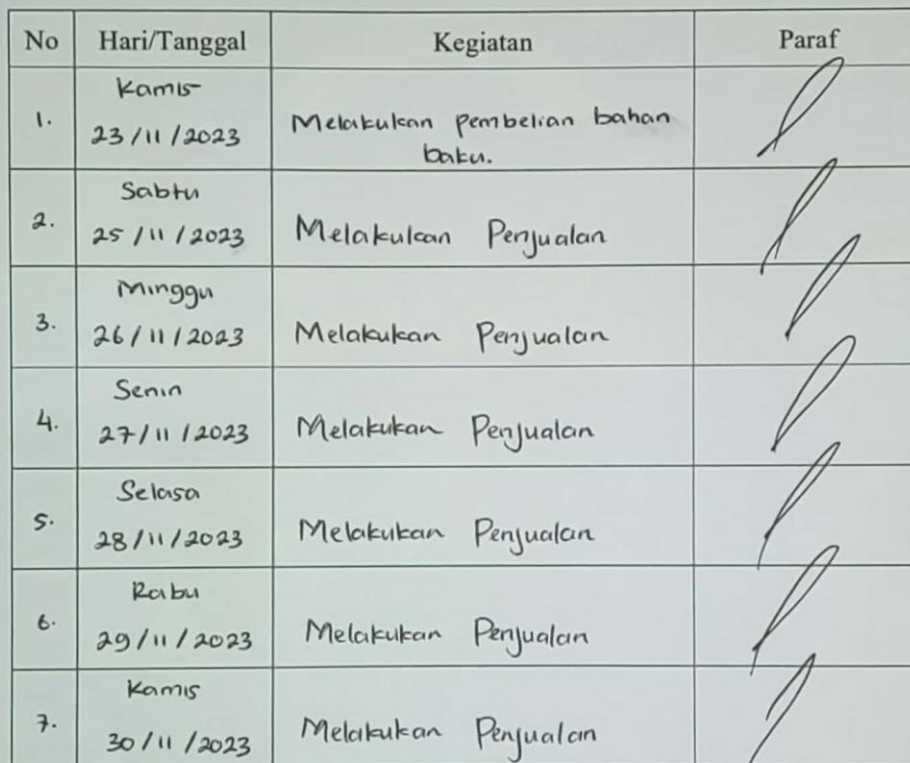 No Hari/Tanggal Kegiatan Paraf
1. Kamis
23/11/2023 Melakukan pembelian bahan
baku.
2. Sabtu
25/11/2023 Melakukan Penjualan
3. Minggu
26/11/2023 Melakukan Penjualan
4. Senin
27/11/2023 Melakukan Penjualan
5. Selasa
28/11/2023 Melakukan Penjualan
6. Rabu
29/11/2023 Melakukan Penjualan
7. Kamis
30/11/2023 Melakukan Penjualan